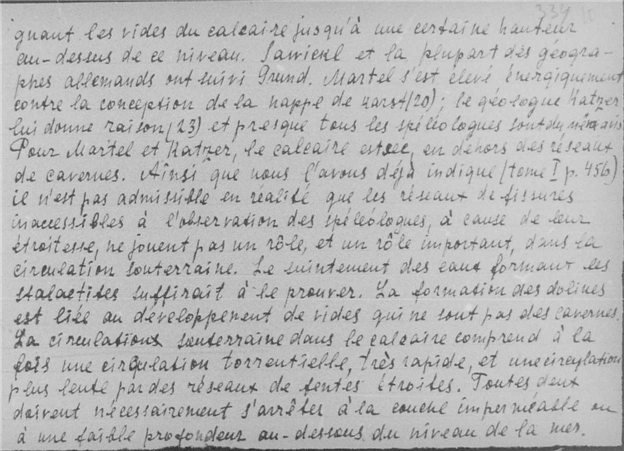 339
quant les vides du calcaire jusqu'à une certaine hauteur
au-dessus de ce niveau. Sawickl et la plupart des géogra-
phes allemands ont suivi Grund. Martel s'est élevé énergiquement
contre la conception de la nappe de karst (20); le géologue Katzer
lui donne raison (23) et presque tous les spéléologues sont du même avis
Pour Martel et Katzer, le calcaire est sec, en dehors des réseaux
de cavernes. Ainsi que nous l'avons déjà indiqué (tome I p. 456)
il n'est pas admissible en réalité que les réseaux de fissures
inaccessibles à l'observation des spéléologues, à cause de leur
étroitesse, ne jouent pas un rôle, et un rôle important, dans la
circulation souterraine. Le suintement des eaux formant les
stalactites suffirait à le prouver. La formation des dolines
est liée au développement de vides qui ne sont pas des cavernes.
La circulations souterraine dans le calcaire comprend à la
fois une circulation torrentielle, très rapide, et une circulation
plus lente par des réseaux de fentes étroites. Toutes deux
doivent nécessairement s'arrêter à la couche imperméable ou
à une faible profondeur au-dessous du niveau de la mer.